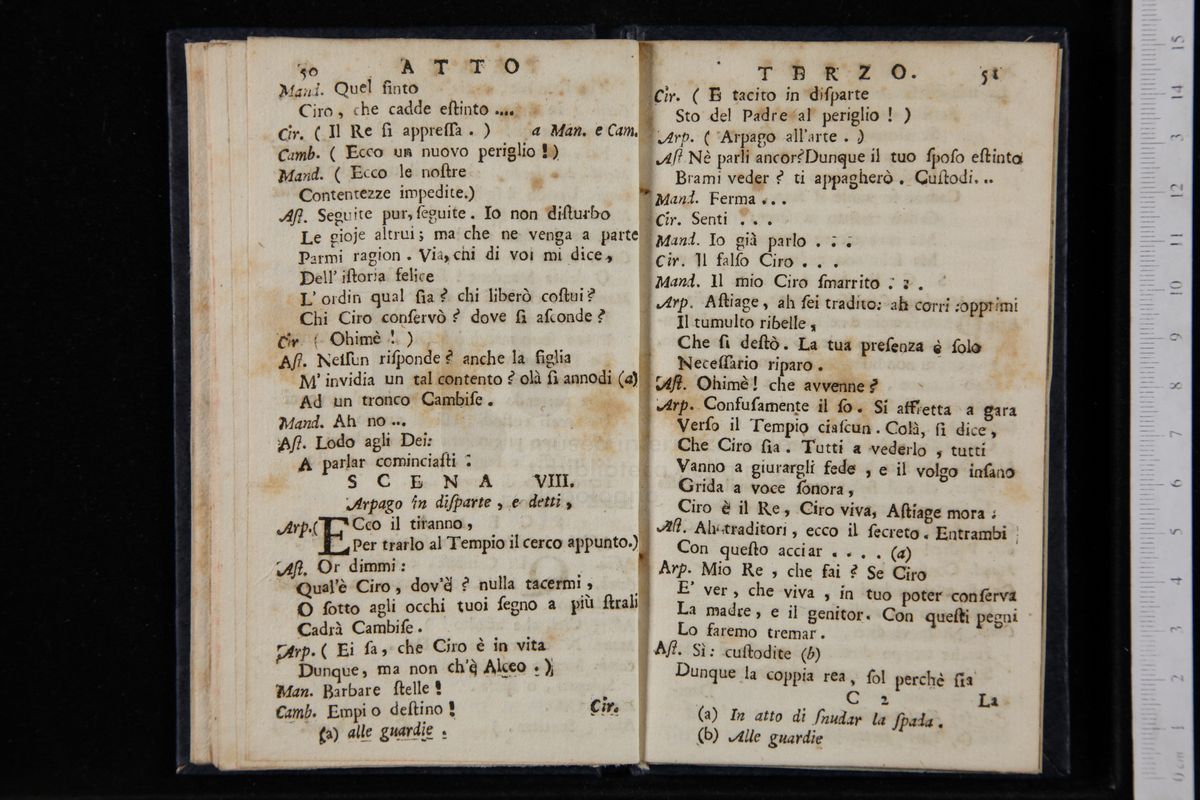 50 ATTO
Mand. Quel finto
Ciro, che cadde eſtinto ....
Cir. ( Il Re ſi appreſſa . ) a Man. e Cam.
Camb. ( Ecco un nuovo periglio ! )
Mand. ( Ecco le noſtre
Contentezze impedite.)
Aſt. Seguite pur, ſeguite . Io non diſturbo
Le gioje altrui ; ma che ne venga a parte
Parmi ragion . Via, chi di voi mi dice,
Dell' iſtoria felice
L' ordin qual ſia ? chi liberò coſtui ?
Chi Ciro conſervò ? dove ſi aſconde ?
Cir ( Ohimè ! )
Aſt. Neſſun riſponde ? anche la figlia
M' invidia un tal contento ? olà ſi annodi (a)
Ad un tronco Cambiſe .
Mand. Ah no ...
Aſt. Lodo agli Dei:
A parlar cominciaſti :
SCENA VIII.
Arpago in diſparte , e detti ,
Arp. ( ECco il tiranno ,
Per trarlo al Tempio il cerco appunto.)
Aſt. Or dimmi :
Qual'è Ciro, dov'è ? nulla tacermi ,
O ſotto agli occhi tuoi ſegno a più ſtrali
Cadrà Cambiſe .
Arp. ( Ei ſa, che Ciro è in vita
Dunque, ma non ch'è Alceo . )
Man. Barbare ſtelle !
Camb. Empio deſtino ! Cir.
(a) alle guardie .
TERZO. 51
Cir. ( E tacito in diſparte
Sto del Padre al periglio ! )
Arp. ( Arpago all'arte . )
Aſt Nè parli ancor? Dunque il tuo ſpoſo eſtinto
Brami veder ? ti appagherò . Cuſtodi...
Mand. Ferma ...
Cir. Senti . . .
Mand. Io già parlo . . .
Cir. Il falſo Ciro . . .
Mand. Il mio Ciro ſmarrito . . .
Arp. Aſtiage, ah ſei tradito: ah corri : opprimi
Il tumulto ribelle ,
Che ſi deſtò. La tua preſenza è ſolo
Neceſſario riparo .
Aſt. Ohimè ! che avvenne ?
Arp. Confuſamente il ſo . Si affretta a gara
Verſo il Tempio ciaſcun . Colà, ſi dice ,
Che Ciro ſia . Tutti a vederlo , tutti
Vanno a giurargli fede , e il volgo inſano
Grida a voce ſonora ,
Ciro è il Re , Ciro viva, Aſtiage mora :
Aſt. Ah traditori, ecco il ſecreto . Entrambi
Con queſto acciar . . . . (a)
Arp. Mio Re , che fai ? Se Ciro
E' ver , che viva , in tuo poter conſerva
La madre , e il genitor . Con queſti pegni
Lo faremo tremar .
Aſt. Sì: cuſtodite (b)
Dunque la coppia rea , ſol perchè ſia
C 2 La
(a) In atto di ſnudar la ſpada .
(b) Alle guardie